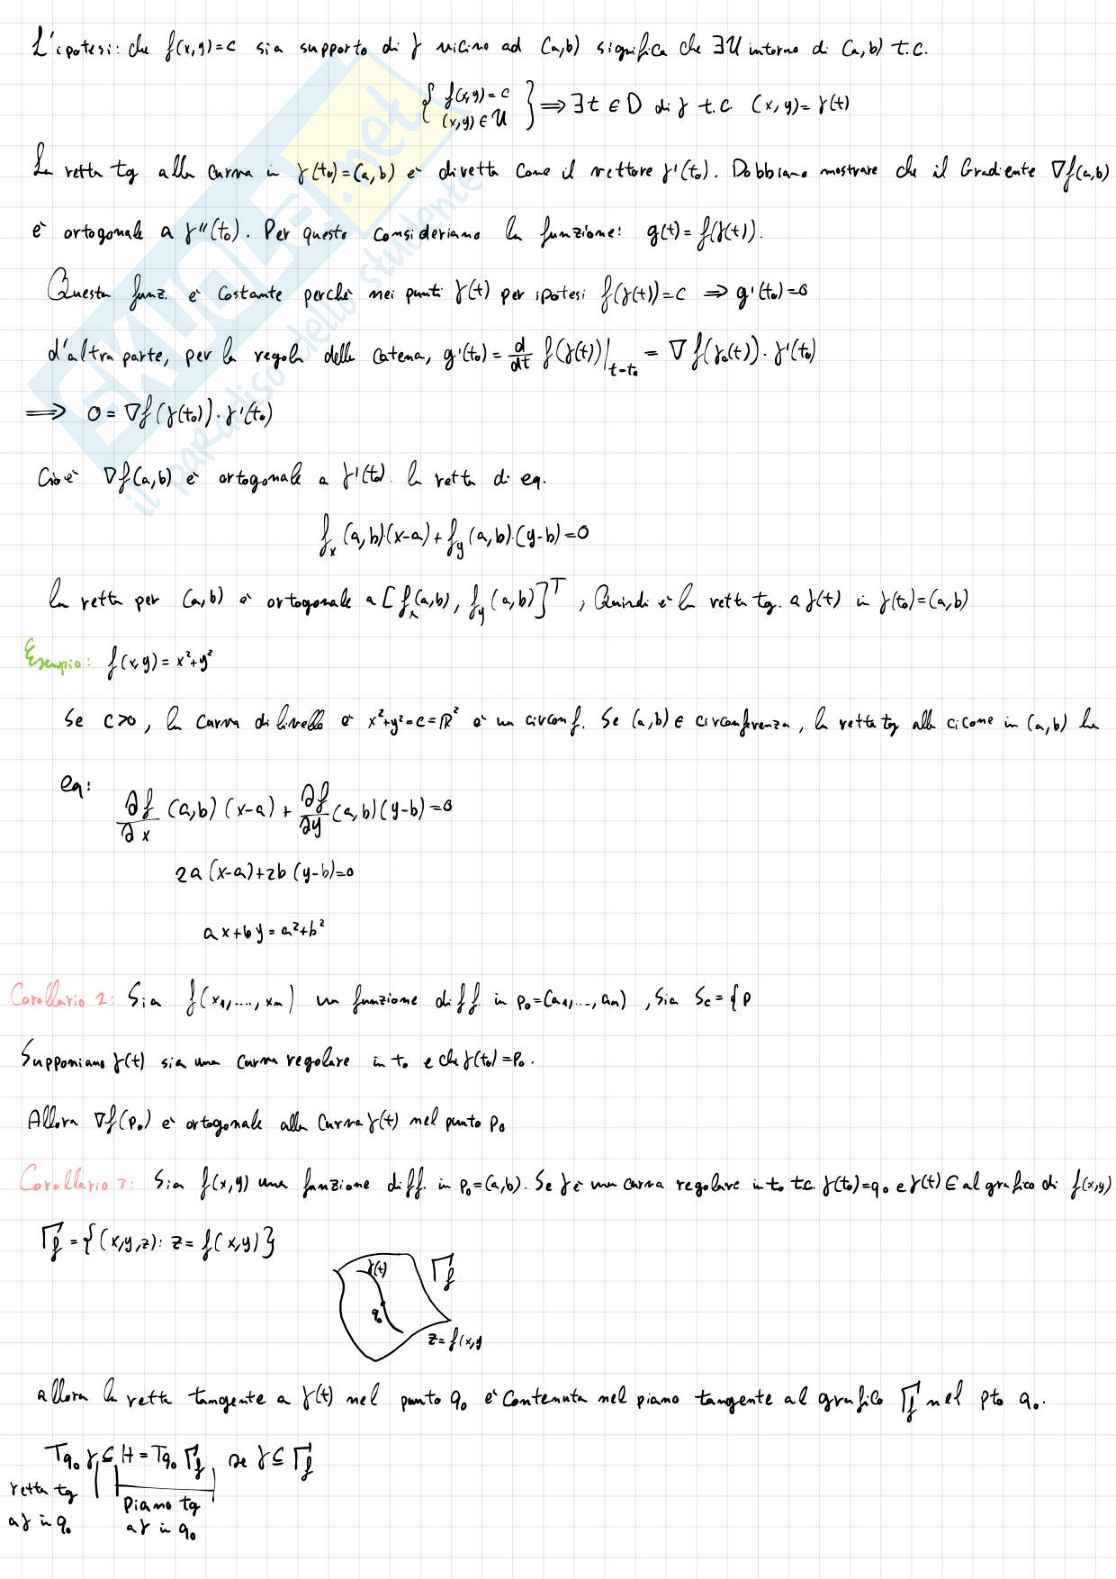 L'ipotesi: che f(x,y)=c sia supporto di γ vicino ad (a,b) significa che ∃U intorno di (a,b) t.c.
{ f(x,y)=c
(x,y)∈U } ⇒ ∃t ∈ D di γ t.c (x,y)=γ(t)
La retta tg alla curva in γ(t₀)=(a,b) è diretta come il vettore γ'(t₀). Dobbiamo mostrare che il Gradiente ∇f(a,b)
è ortogonale a γ''(t₀). Per questo consideriamo la funzione: g(t)=f(γ(t)).
Questa funz. è costante perché nei punti γ(t) per ipotesi f(γ(t))=c ⇒ g'(t₀)=0
d'altra parte, per la regola della catena, g'(t₀)= d/dt f(γ(t))|t=t₀ = ∇f(γ₀(t))·γ'(t₀)
⇒ 0=∇f(γ(t₀))·γ'(t₀)
Cioè ∇f(a,b) è ortogonale a γ'(t₀). la retta di eq.
fx(a,b)(x-a)+fy(a,b)·(y-b)=0
la retta per (a,b) è ortogonale a [fx(a,b), fy(a,b)]ᵀ, Quindi è la retta tg. a γ(t) in γ(t₀)=(a,b)
Esempio: f(x,y)=x²+y²
Se c>0, la curva di livello è x²+y²=c=R² è un circonf. Se (a,b)∈ circonferenza, la retta tg alla cicome in (a,b) ha
eq:
∂f/∂x (a,b)(x-a)+ ∂f/∂y (a,b)(y-b)=0
2a(x-a)+2b(y-b)=0
ax+by=a²+b²
Corollario 2: Sia f(x₁,....,xₙ) un funzione diff in p₀=(a₁,...,aₙ), Sia Sc={p
Supponiamo γ(t) sia una curva regolare in t₀ e che γ(t₀)=p₀.
Allora ∇f(p₀) è ortogonale alla curva γ(t) nel punto p₀
Corollario 3: Sia f(x,y) una funzione diff. in p₀=(a,b). Se γ è una curva regolare in t₀ t.c. γ(t₀)=q₀ e γ(t)∈ al grafico di f(x,y)
Γf={(x,y,z): z=f(x,y)}
γ(t)
Γf
q₀
z=f(x,y
allora la retta tangente a γ(t) nel punto q₀ è contenuta nel piano tangente al grafico Γf nel pto q₀.
Tq₀γ⊆H=Tq₀Γf, se γ⊆Γf
retta tg
aγ in q₀
Piano tg
aγ in q₀
SKUOLA.net
il paradiso dello studente